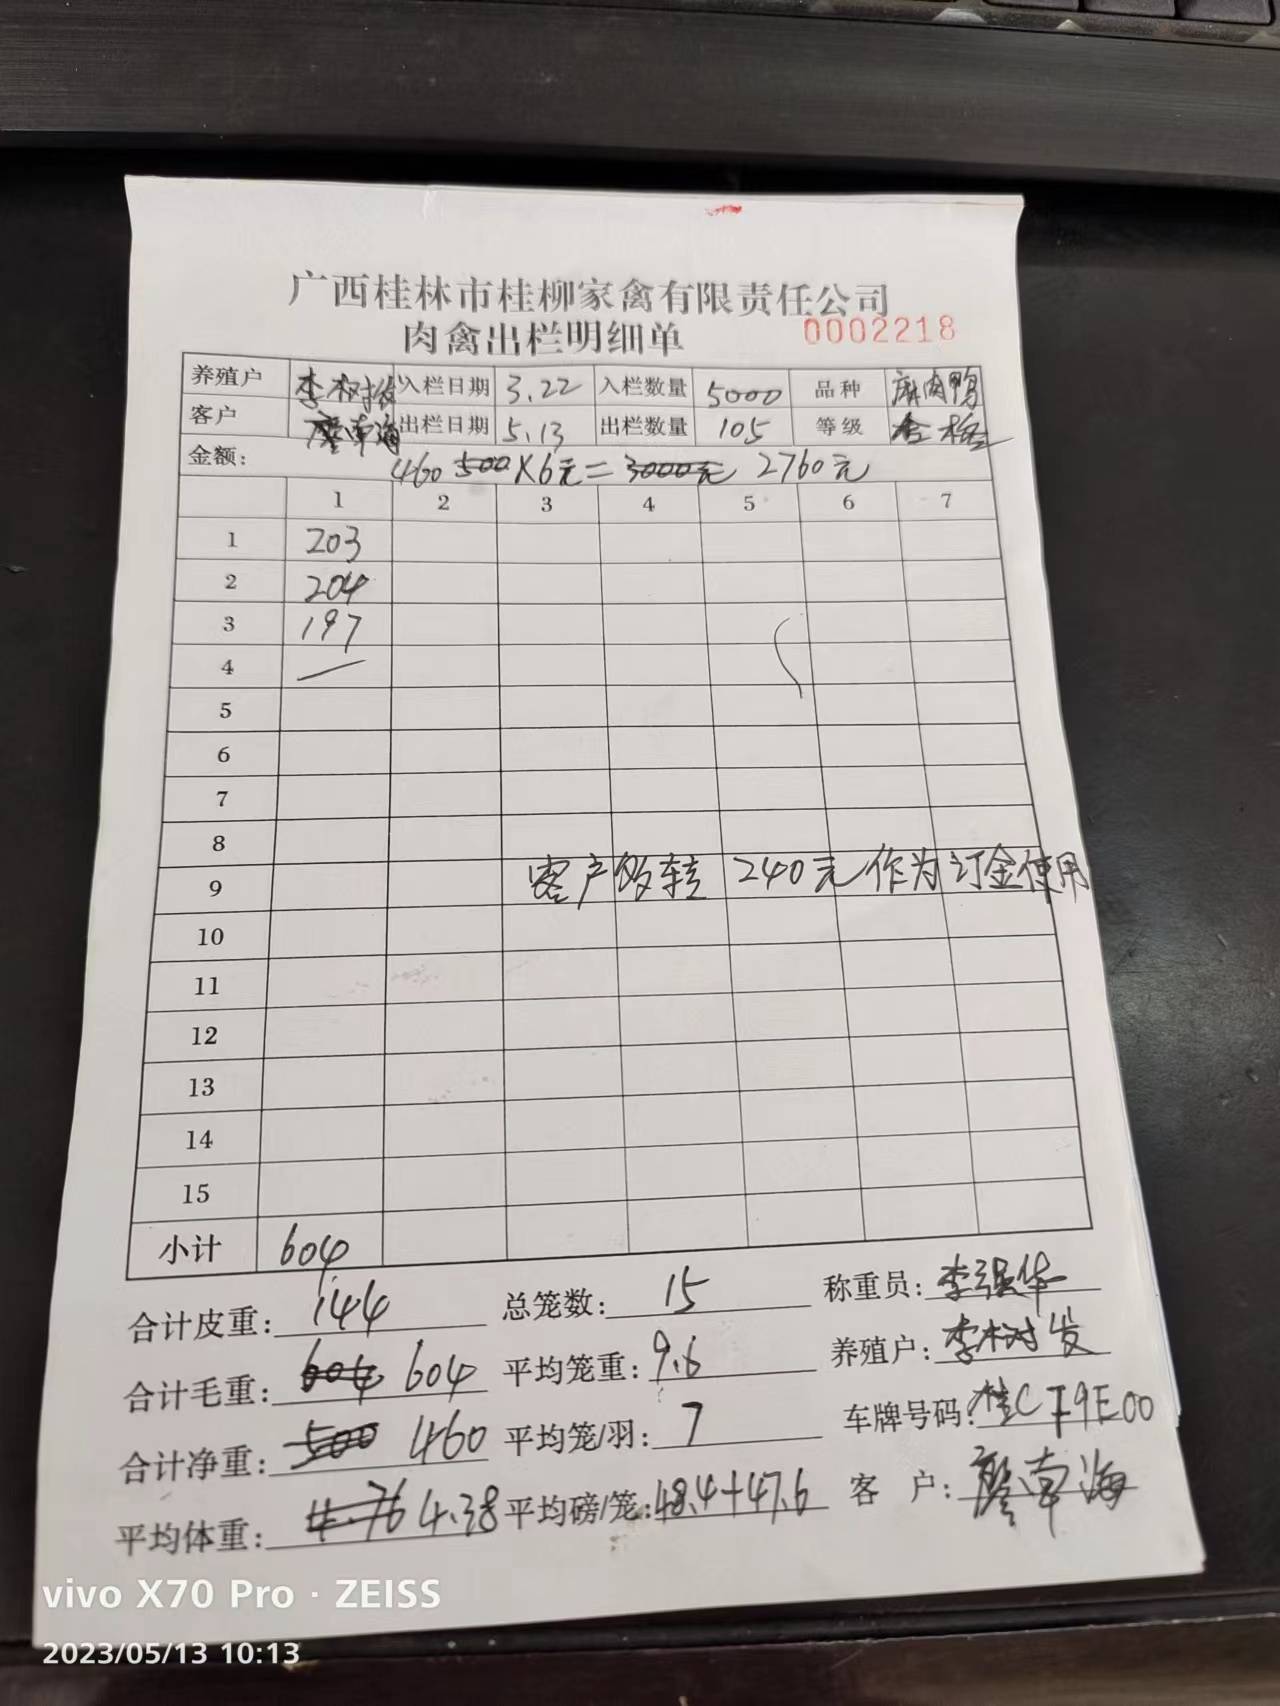 广西桂林市桂柳家禽有限责任公司
肉禽出栏明细单 0002218
养殖户 李树发 入栏日期 3.22 入栏数量 5000 品种 麻肉鸭
客户 廖南海 出栏日期 5.13 出栏数量 105 等级 合格
金额: 460 500×6元=3000元 2760元
1 2 3 4 5 6 7
1 203
2 204
3 197
4
5
6
7
8
9 客户多转 240元作为订金使用
10
11
12
13
14
15
小计 604
合计皮重: 144 总笼数: 15 称重员: 李强华
合计毛重: 604 604 平均笼重: 9.6 养殖户: 李树发
合计净重: 500 460 平均笼/羽: 7 车牌号码: 桂CF9E00
平均体重: 4.76 4.38 平均磅/笼: 48.4+47.6 客户: 廖南海
vivo X70 Pro · ZEISS
2023/05/13 10:13